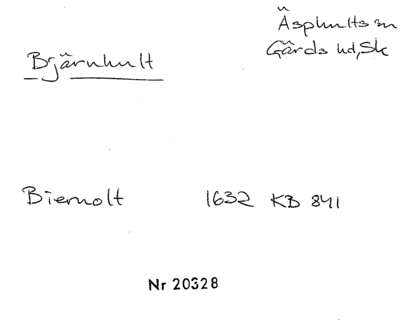 Äsphults sn
Gärds hd, Sk
Bjärnhult
Biernolt 1632 KB 841
Nr 20328